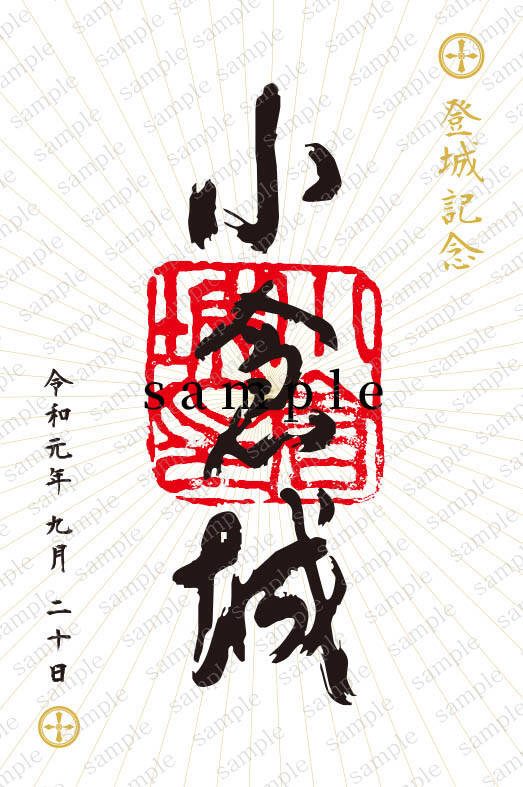 登城記念
小倉城
小倉
城印
sample
令和元年 九月 二十日